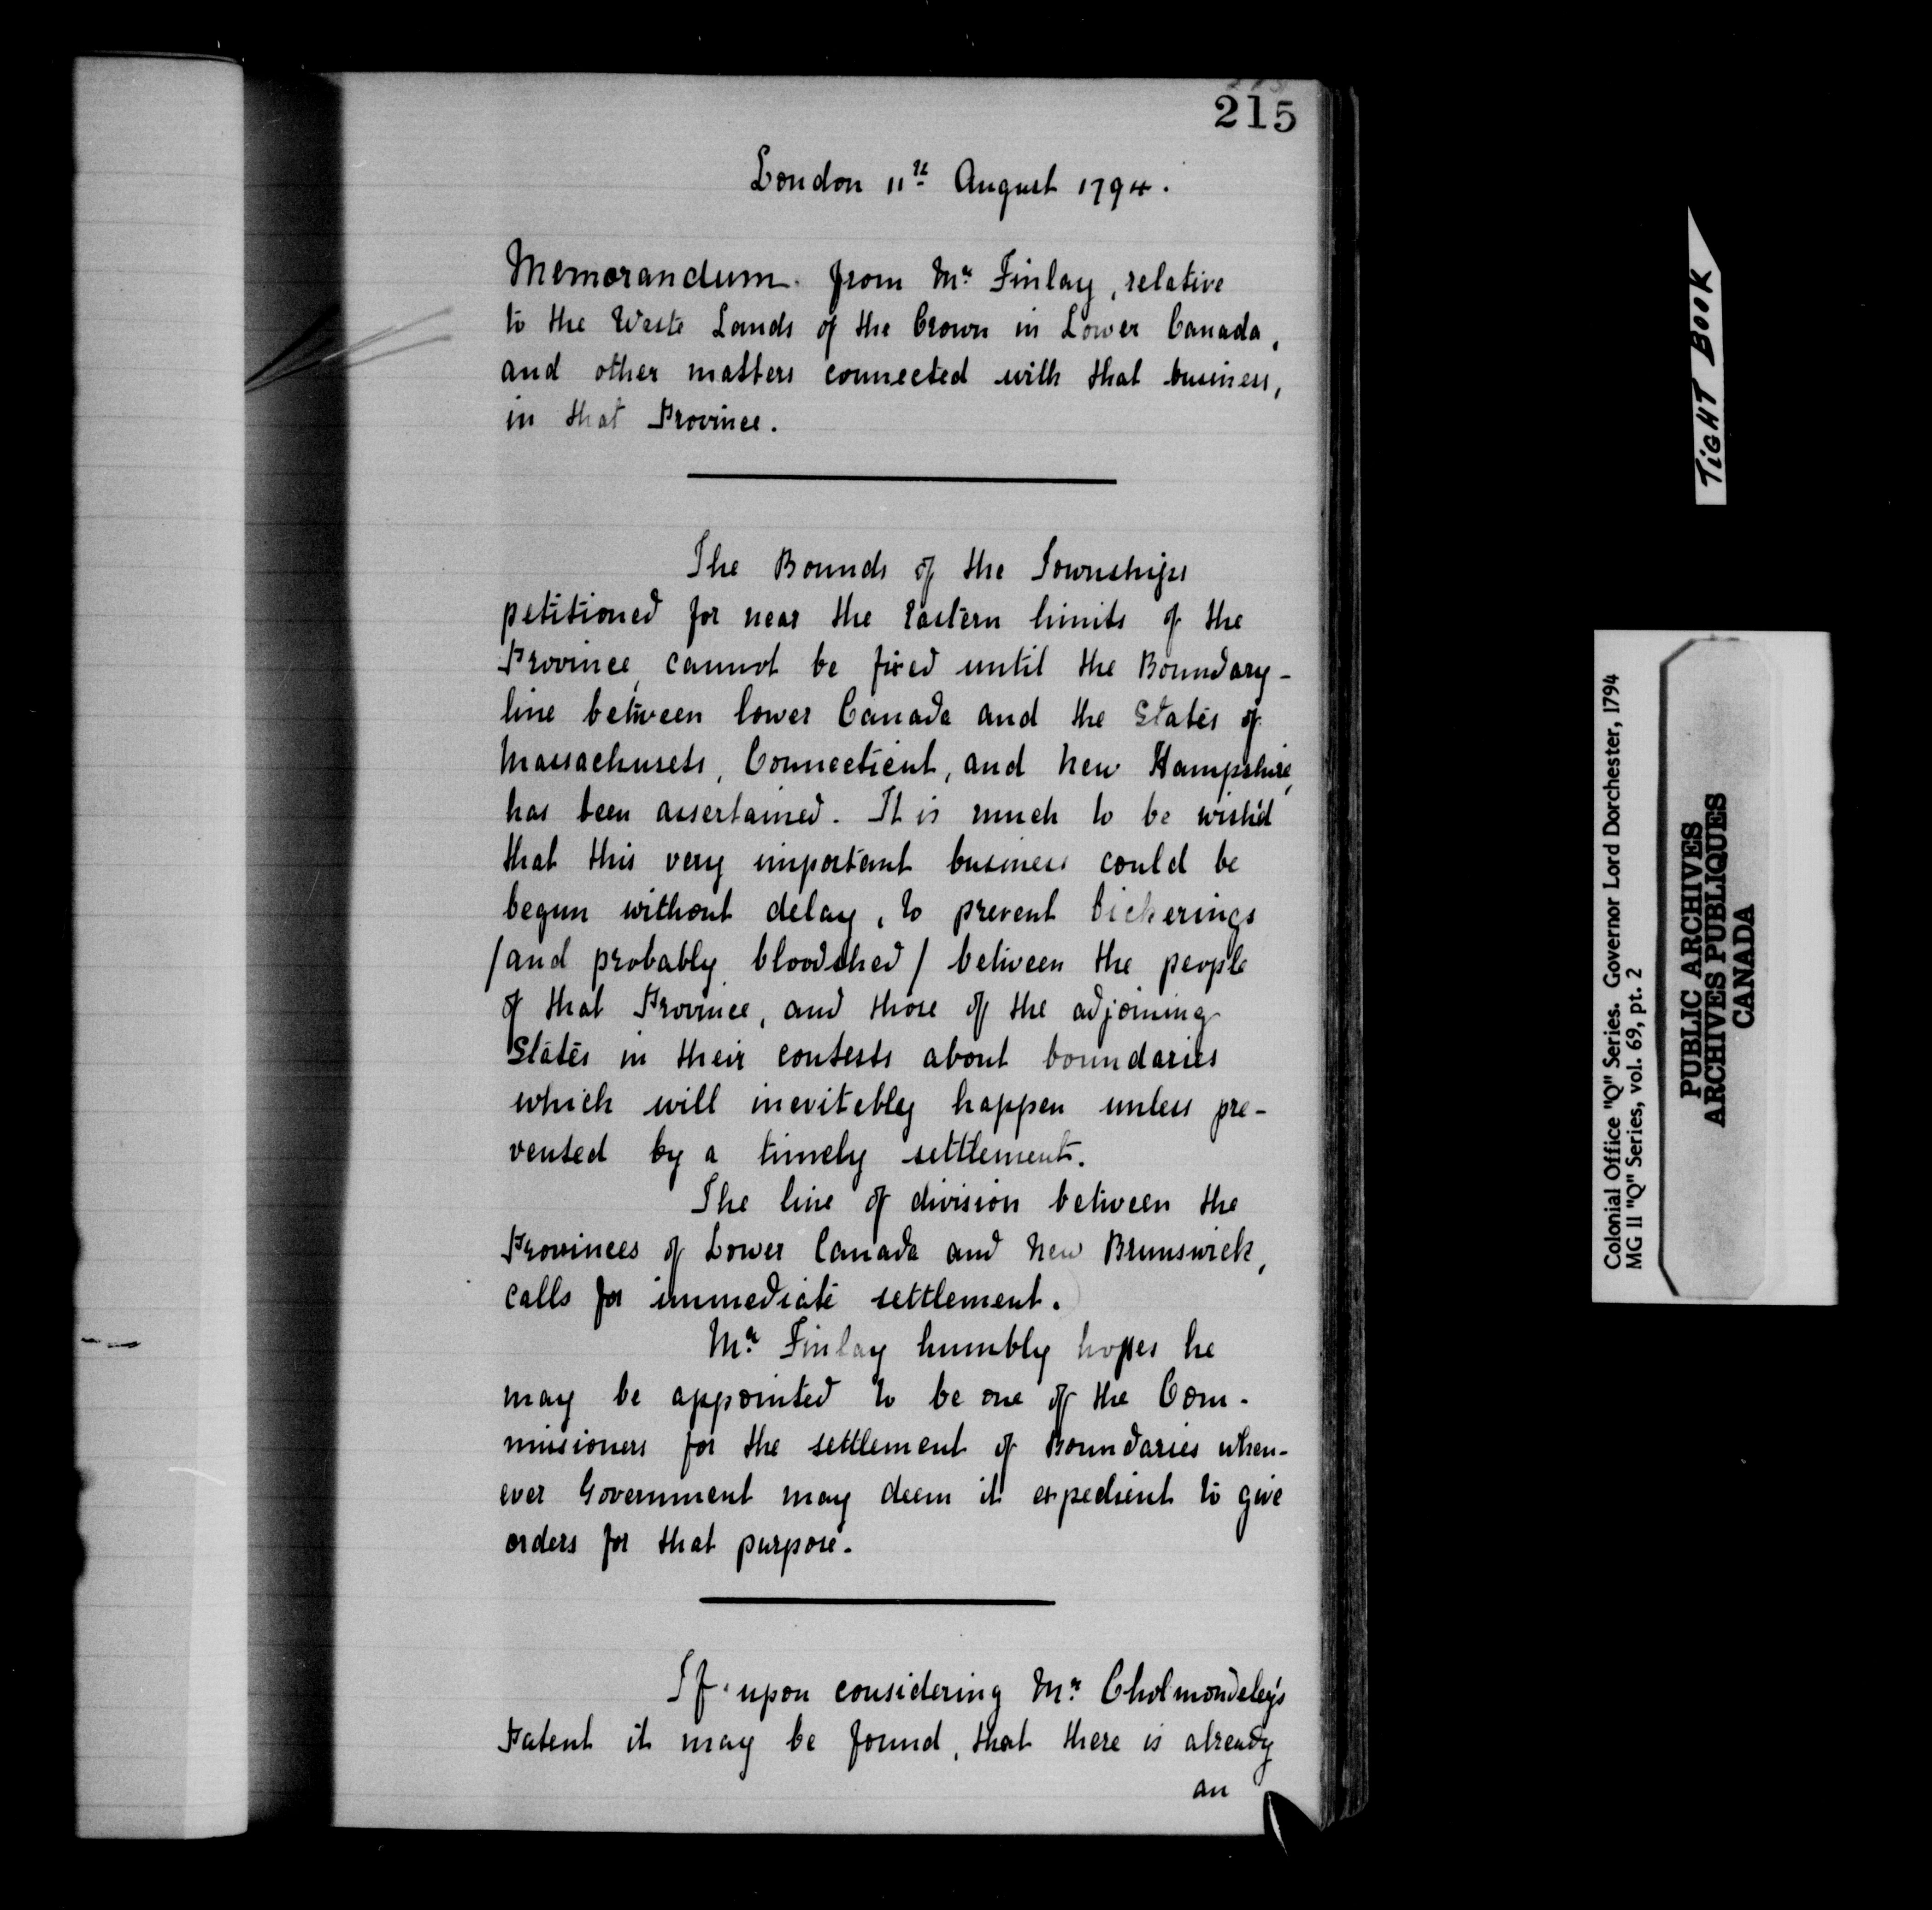 215
London 11th August 1794.
Memorandum from Mr Finlay, relative
to the Waste Lands of the Crown in Lower Canada,
and other matters connected with that business,
in that Province.
The Bounds of the Townships
petitioned for near the Eastern limits of the
Province, cannot be fixed until the Boundary-
line between lower Canada and the States of
Massachusets, Connecticut, and New Hampshire,
has been assertained. It is much to be wish'd
that this very important business could be
begun without delay, to prevent bickerings
/and probably bloodshed/ between the people
of that Province, and those of the adjoining
States in their contests about boundaries
which will inevitably happen unless pre-
vented by a timely settlement.
The line of division between the
Provinces of Lower Canada and New Brunswick,
calls for immediate settlement.
Mr Finlay humbly hopes he
may be appointed to be one of the Com-
missioners for the settlement of Boundaries when-
ever Government may deem it expedient to give
orders for that purpose.
If upon considering Mr Cholmondeley's
Patent it may be found, that there is already
an
TIGHT BOOK
Colonial Office "Q" Series. Governor Lord Dorchester, 1794
MG II "Q" Series, vol. 69, pt. 2
PUBLIC ARCHIVES
ARCHIVES PUBLIQUES
CANADA